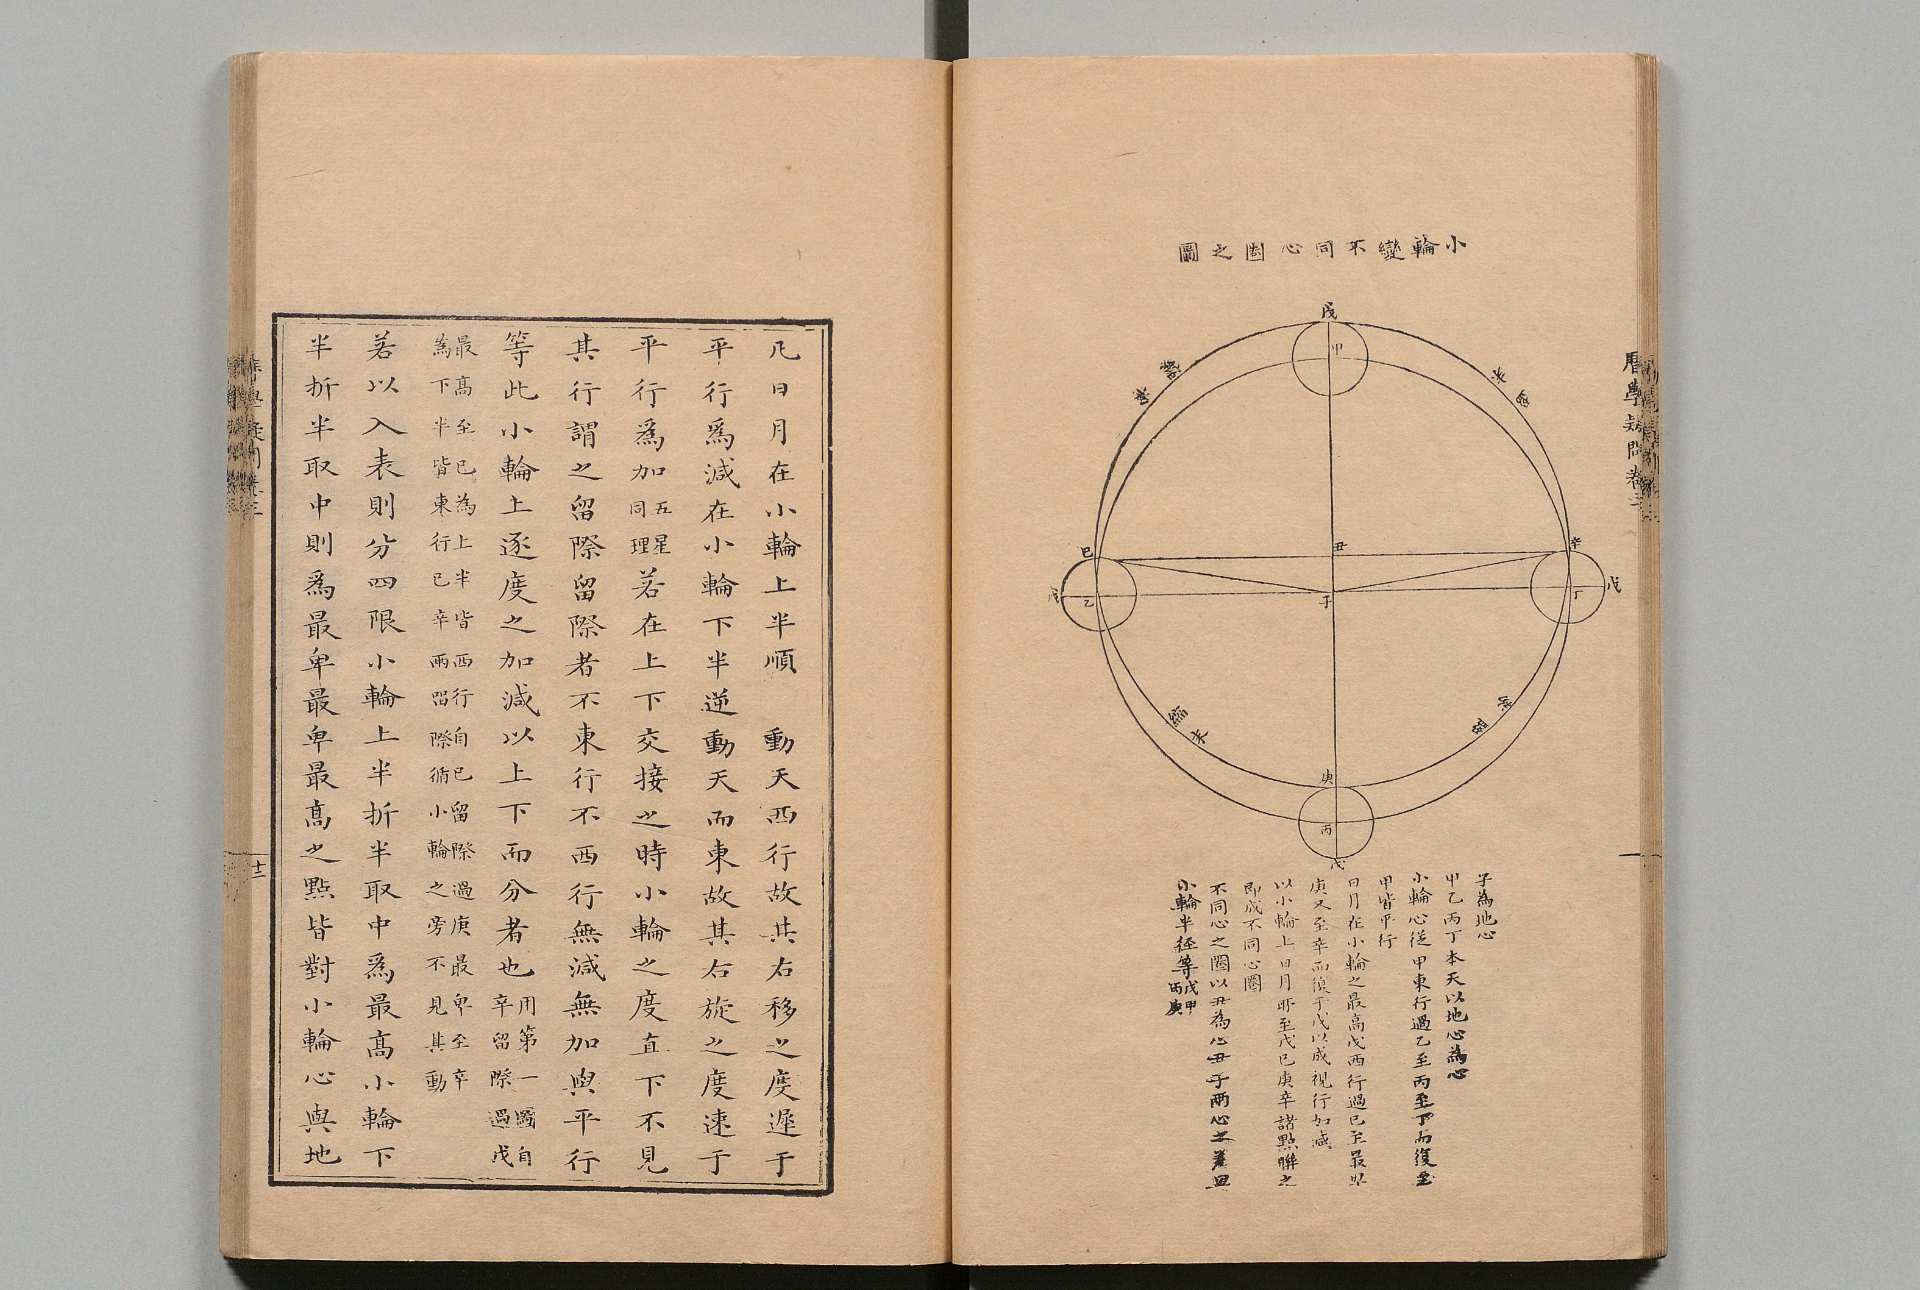 小輪變不同心圈之圖
戊
甲
丑
子
巳
辛
乙
丁
戊
戊
庚
丙
戊
子為地心
甲乙丙丁本天以地心為心
小輪心從甲東行過乙至丙至丁而復至
甲皆平行
日月在小輪之最高戊西行過巳至最卑
庚又至辛而復于戊以成視行加減
以小輪上日月所至戊巳庚辛諸點聯之
即成不同心圈
不同心之圈以丑為心丑子兩心之差與
小輪半徑等戊甲丙庚
曆學疑問卷三
凡日月在小輪上半順 動天西行故其右移之度遲于
平行爲減在小輪下半逆動天而東故其右旋之度速于
平行爲加五星同理若在上下交接之時小輪之度直下不見
其行謂之留際留際者不東行不西行無減無加與平行
等此小輪上逐度之加減以上下而分者也用第一圖自辛留際過戊
最高至巳為上半皆西行自巳留際過庚最卑至辛
為下半皆東行巳辛兩留際循小輪之旁不見其動
若以入表則分四限小輪上半折半取中爲最高小輪下
半折半取中則爲最卑最卑最高之點皆對小輪心與地
十二